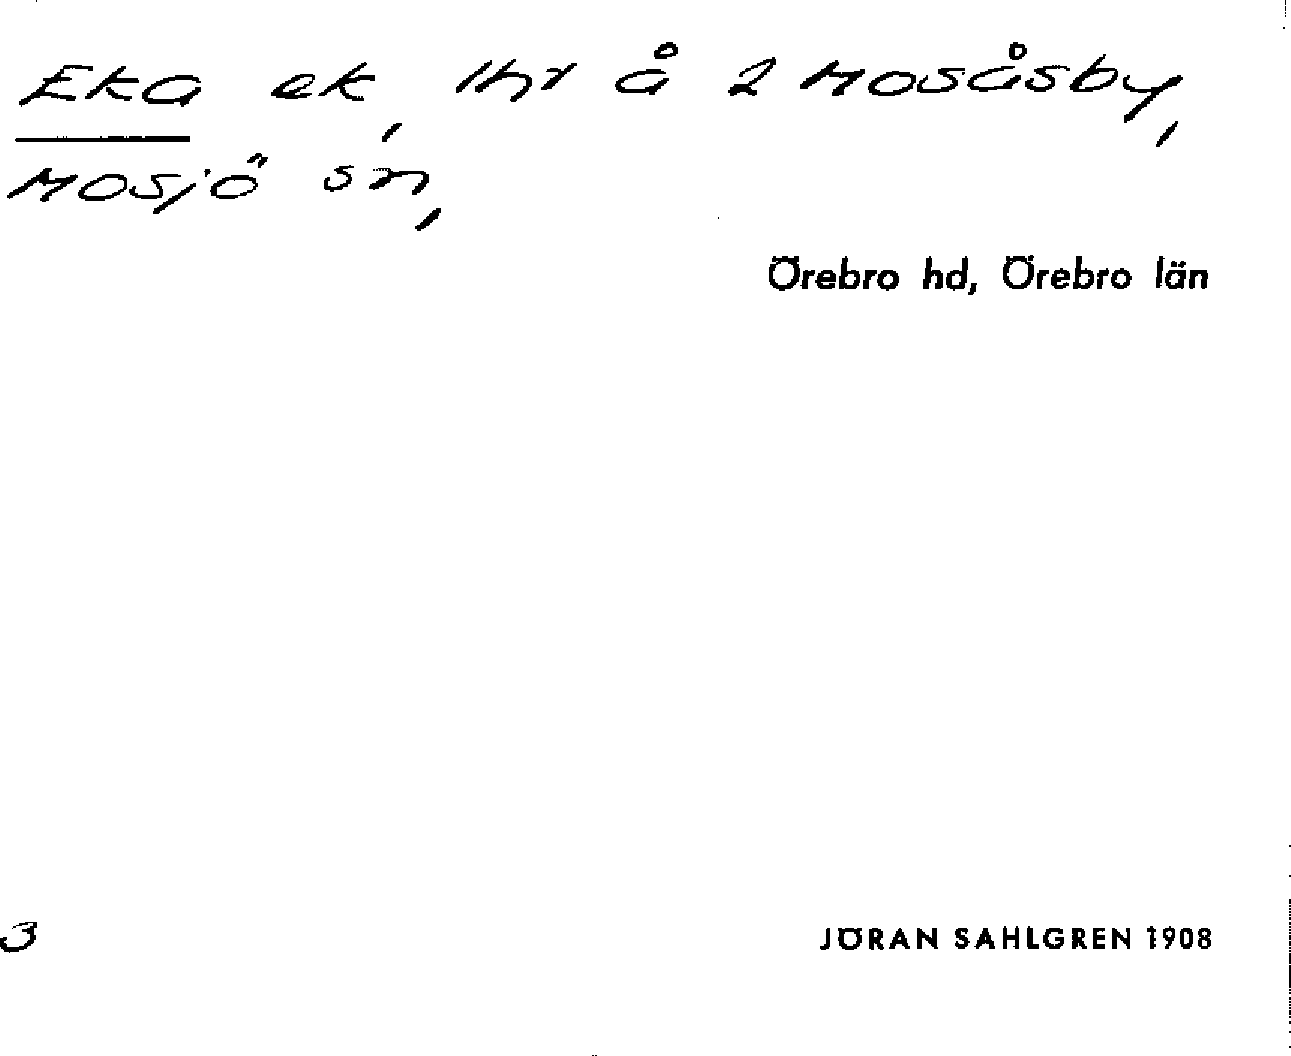 Eka ek, lhr å 2 Mosåsby,
Mosjö sn,
Örebro hd, Örebro län
3
JÖRAN SAHLGREN 1908